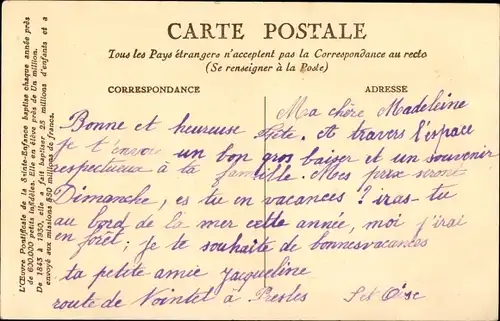 CARTE POSTALE
Tous les Pays étrangers n'acceptent pas la Correspondance au recto
(Se renseigner à la Poste)
CORRESPONDANCE
ADRESSE
Ma chère Madeleine
Bonne et heureuse fête. A travers l'espace
je t'envoie un bon gros baiser et un souvenir
respectueux à ta famille. Mes prix seront
Dimanche, es tu en vacances ? iras-tu
au bord de la mer cette année, moi j'irai
en forêt; je te souhaite de bonnes vacances
ta petite amie Jacqueline
route de Nointel à Presles Set Oise
L'Œuvre Pontificale de la Sainte-Enfance baptise chaque année près
de 600.000 petits infidèles. Elle en élève près de Un million.
De 1843 à 1930, elle a fait baptiser 25 millions d'enfants et a
envoyé aux missions 530 millions de francs.